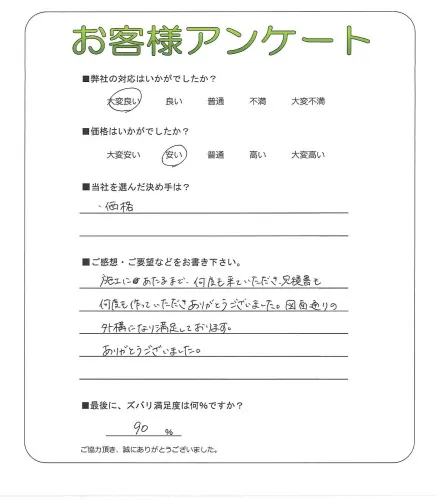 お客様アンケート
■弊社の対応はいかがでしたか?
大変良い 良い 普通 不満 大変不満
■価格はいかがでしたか?
大変安い 安い 普通 高い 大変高い
■当社を選んだ決め手は?
・価格
■ご感想・ご要望などをお書き下さい。
施工にあたるまで、何度も来ていただき、見積書も
何度も作っていただきありがとうございました。図面通りの
外構になり満足しております。
ありがとうございました。
■最後に、ズバリ満足度は何%ですか?
90 %
ご協力頂き、誠にありがとうございました。